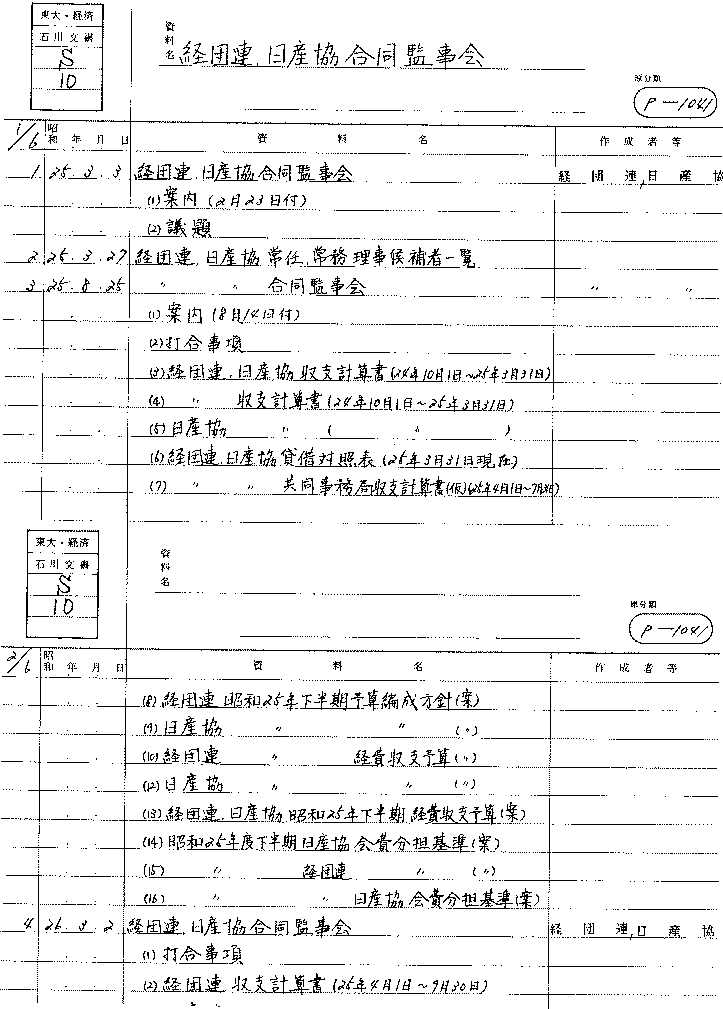 東大・経済
石川文書
S
10
資料名 経団連、日産協合同監事会
原分類
P-1041
1/6 昭和 年 月 日 資 料 名 作 成 者 等
1 25.3.3 経団連、日産協合同監事会 経団連、日産協
(1) 案内 (2月23日付)
(2) 議題
2 25.3.27 経団連、日産協常任、常務理事候補者一覧
3 25.8.25 〃 〃 合同監事会 〃 〃
(1) 案内 (8月14日付)
(2) 打合事項
(3) 経団連、日産協収支計算書 (24年10月1日~25年3月31日)
(4) 〃 収支計算書 (24年10月1日~25年3月31日)
(5) 日産協 〃 ( 〃 )
(6) 経団連、日産協貸借対照表 (25年3月31日現在)
(7) 〃 〃 共同事務局収支計算書(仮)(25年4月1日~7月末)
東大・経済
石川文書
S
10
資料名
原分類
P-1041
2/6 昭和 年 月 日 資 料 名 作 成 者 等
(8) 経団連 昭和25年下半期予算編成方針(案)
(9) 日産協 〃 〃 (〃)
(10) 経団連 〃 経費収支予算(〃)
(12) 日産協 〃 〃 (〃)
(13) 経団連、日産協昭和25年下半期経費収支予算(案)
(14) 昭和25年度下半期日産協会費分担基準(案)
(15) 〃 経団連 〃 (〃)
(16) 〃 〃 日産協会費分担基準(案)
4 26.3.2 経団連、日産協合同監事会 経団連、日産協
(1) 打合事項
(2) 経団連 収支計算書 (25年4月1日~9月30日)